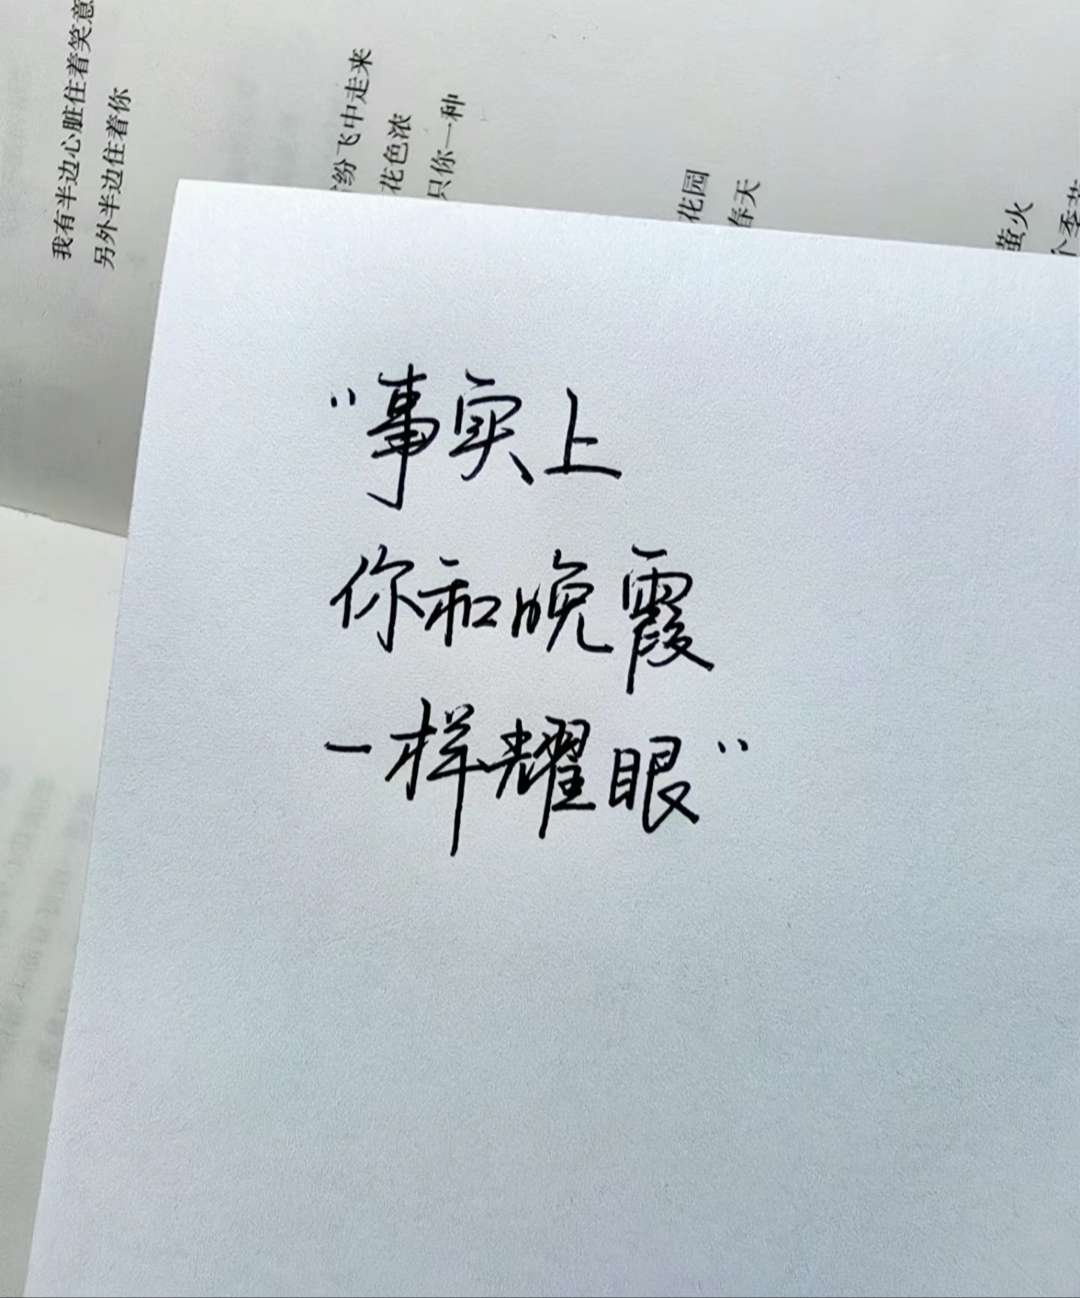 我有半边心脏住着笑意
另外半边住着你
纷飞中走来
花色浓
只你一种
花园
春天
萤火
个季节
"事实上
你和晚霞
一样耀眼"